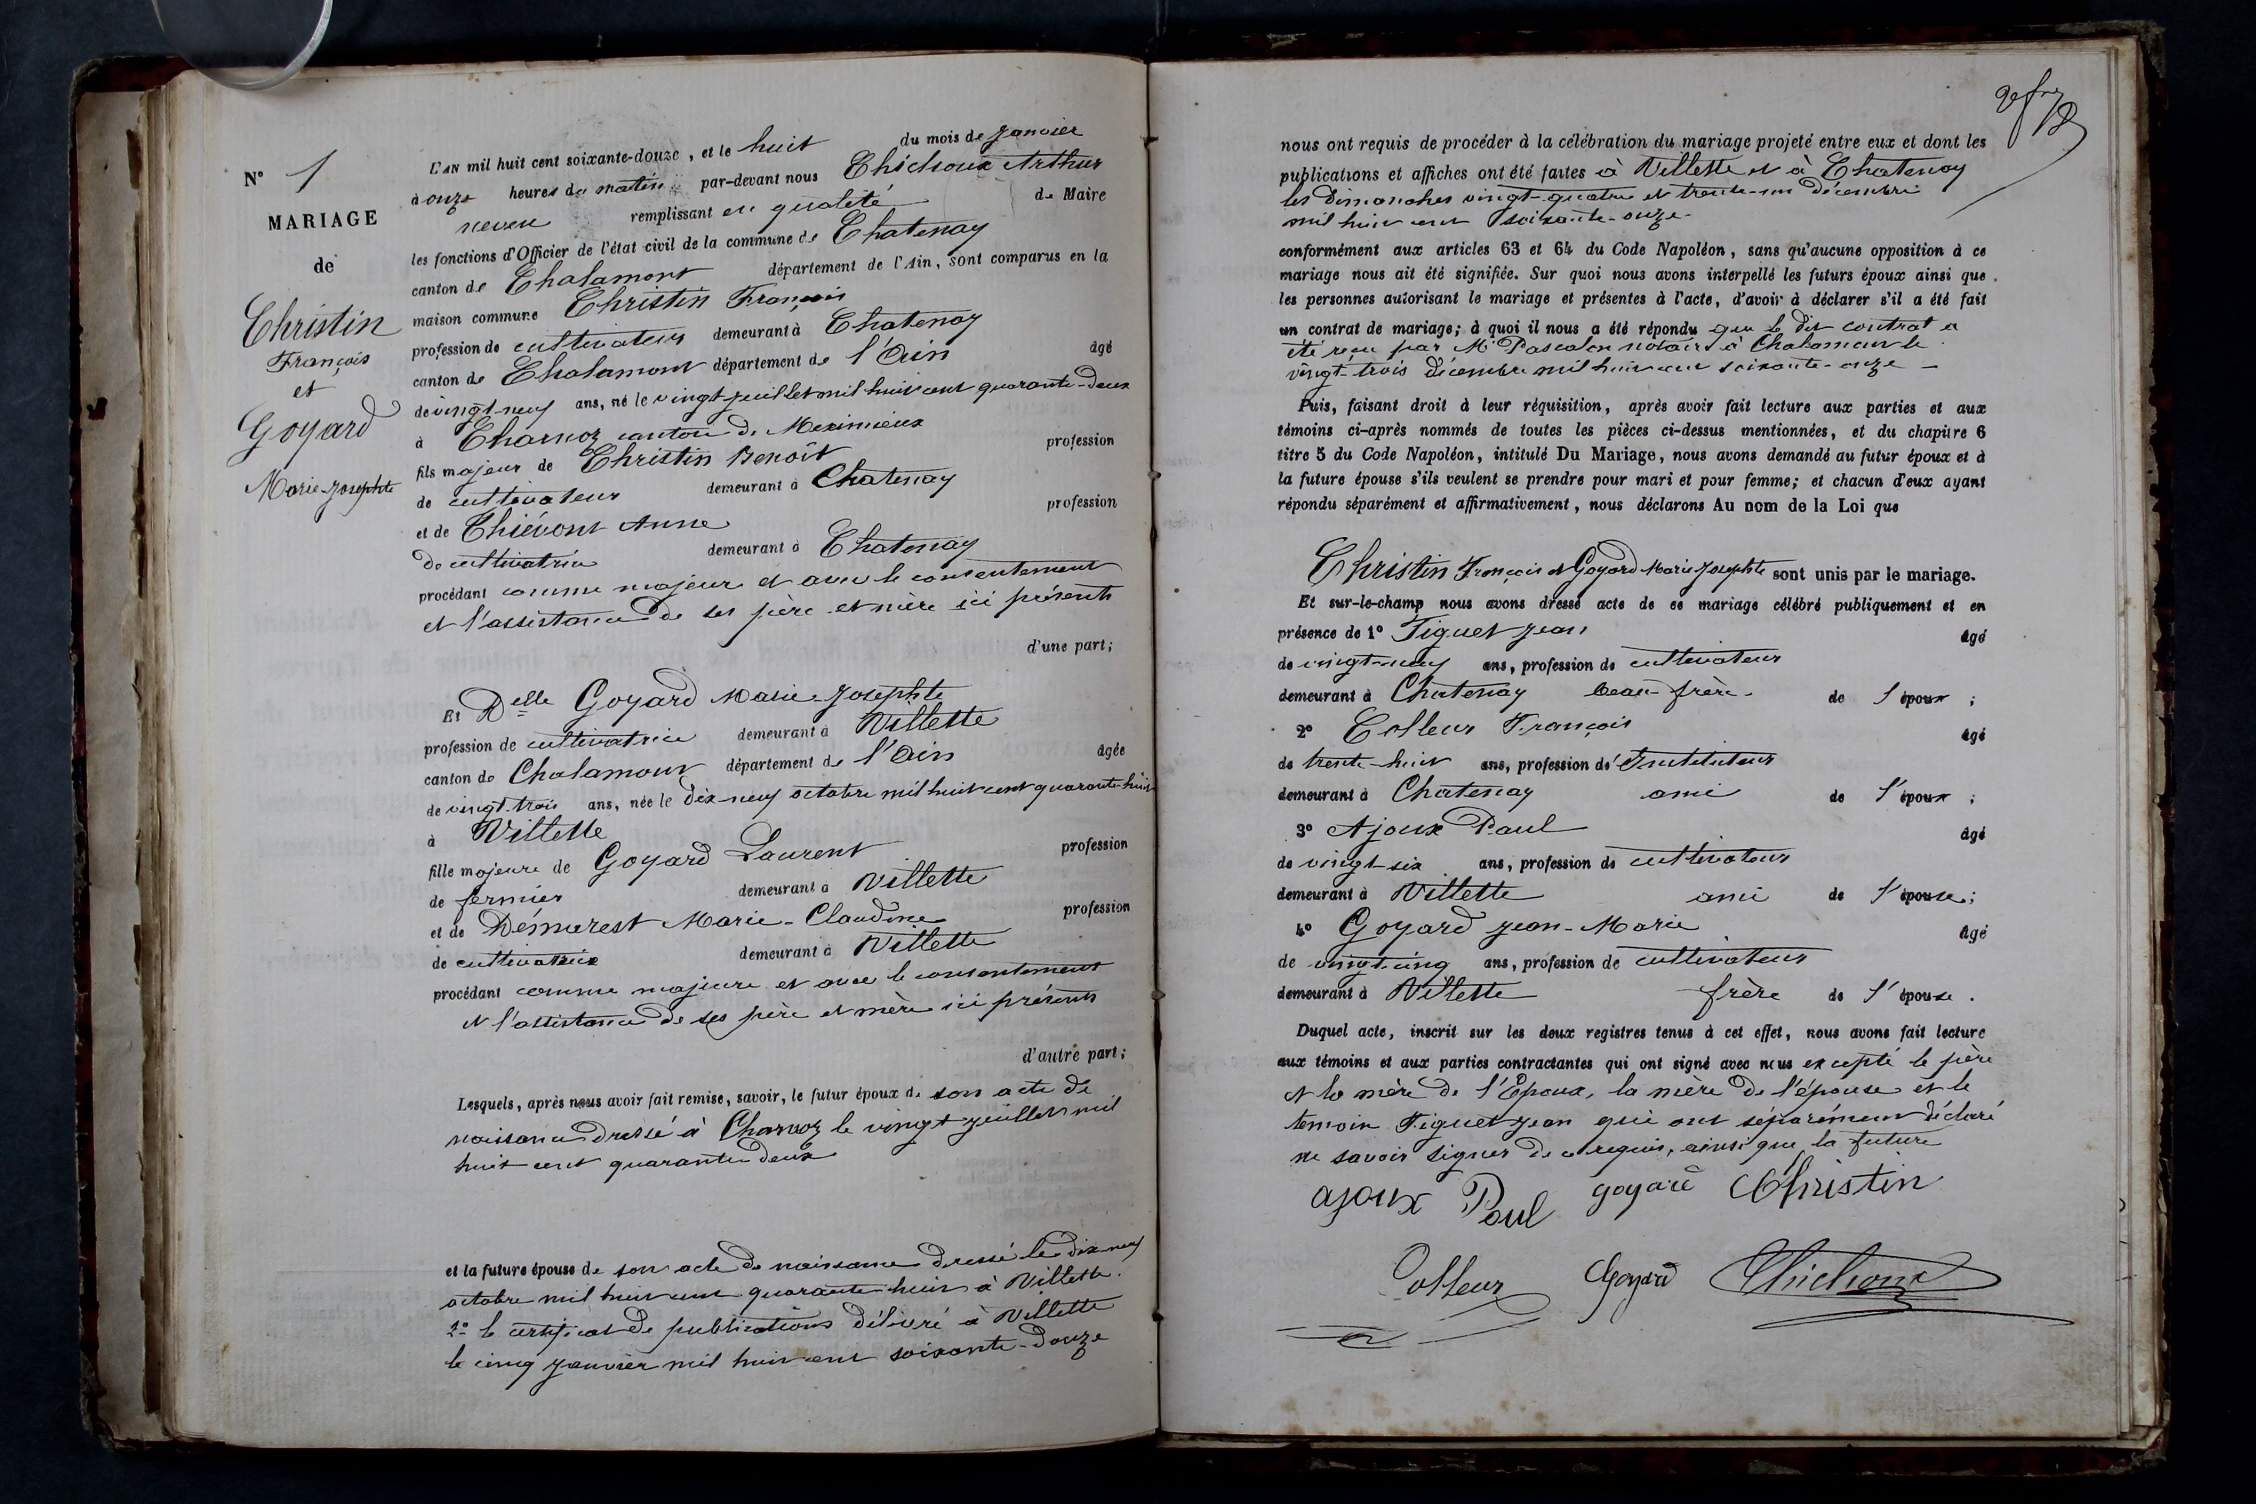 N° 1
MARIAGE
de
Christin
François
et
Goyard
Marie-Josephte
L'AN mil huit cent soixante-douze, et le huit du mois de Janvier
à onze heures du matin par-devant nous Chichoux Arthur
remplissant en qualité de Maire
les fonctions d'Officier de l'état civil de la commune de Chatenay
canton de Chalamont département de l'Ain, sont comparus en la
maison commune Christin François
profession de cultivateur demeurant à Chatenay
canton de Chalamont département de l'Ain âgé
de vingt-neuf ans, né le vingt juillet mil huit cent quarante-deux
à Charnoz canton de Meximieux
fils majeur de Christin Benoît profession
de cultivateur demeurant à Chatenay
et de Thiévont Anne profession
de cultivatrice demeurant à Chatenay
procédant comme majeur et avec le consentement
et l'assistance de ses père et mère ici présents
d'une part;
Et Delle Goyard Marie-Josephte
profession de cultivatrice demeurant à Villette
canton de Chalamont département de l'Ain âgée
de vingt-trois ans, née le dix-neuf octobre mil huit cent quarante-huit
à Villette
fille majeure de Goyard Laurent profession
de fermier demeurant à Villette
et de Démurest Marie-Claudine profession
de cultivatrice demeurant à Villette
procédant comme majeure et avec le consentement
et l'assistance de ses père et mère ici présents
d'autre part;
Lesquels, après nous avoir fait remise, savoir, le futur époux de son acte de
naissance dressé à Charnoz le vingt juillet mil
huit cent quarante deux
et la future épouse de son acte de naissance dressé le dix-neuf
octobre mil huit cent quarante huit à Villette.
2° le certificat de publications délivré à Villette
le cinq janvier mil huit cent soixante-douze
nous ont requis de procéder à la célébration du mariage projeté entre eux et dont les
publications et affiches ont été faites à Villette et à Chatenay
les Dimanches vingt-quatre et trente-un décembre
mil huit cent soixante-onze-
conformément aux articles 63 et 64 du Code Napoléon, sans qu'aucune opposition à ce
mariage nous ait été signifiée. Sur quoi nous avons interpellé les futurs époux ainsi que
les personnes autorisant le mariage et présentes à l'acte, d'avoir à déclarer s'il a été fait
un contrat de mariage; à quoi il nous a été répondu que le dit contrat a
été reçu par Me Pascalon notaire à Chalamont le
vingt-trois décembre mil huit cent soixante-onze -
Puis, faisant droit à leur réquisition, après avoir fait lecture aux parties et aux
témoins ci-après nommés de toutes les pièces ci-dessus mentionnées, et du chapitre 6
titre 5 du Code Napoléon, intitulé Du Mariage, nous avons demandé au futur époux et à
la future épouse s'ils veulent se prendre pour mari et pour femme; et chacun d'eux ayant
répondu séparément et affirmativement, nous déclarons Au nom de la Loi que
Christin François et Goyard Marie Josephte sont unis par le mariage.
Et sur-le-champ nous avons dressé acte de ce mariage célébré publiquement et en
présence de 1° Figuet Jean âgé
de vingt-neuf ans, profession de cultivateur
demeurant à Chatenay beau-frère- de l'époux ;
2° Colleur François âgé
de trente-huit ans, profession d'Instituteur
demeurant à Chatenay ami de l'époux ;
3° Ajoux Paul âgé
de vingt-six ans, profession de cultivateur
demeurant à Villette ami de l'épouse;
4° Goyard Jean-Marie âgé
de vingt-cinq ans, profession de cultivateur
demeurant à Villette frère de l'épouse.
Duquel acte, inscrit sur les deux registres tenus à cet effet, nous avons fait lecture
aux témoins et aux parties contractantes qui ont signé avec nous excepté le père
et la mère de l'Epoux, la mère de l'épouse et le
temoin Figuet Jean qui ont séparément déclaré
ne savoir signer de ce requis, ainsi que la future
ajoux Paul goyard Christin
Colleur Goyard Chichoux